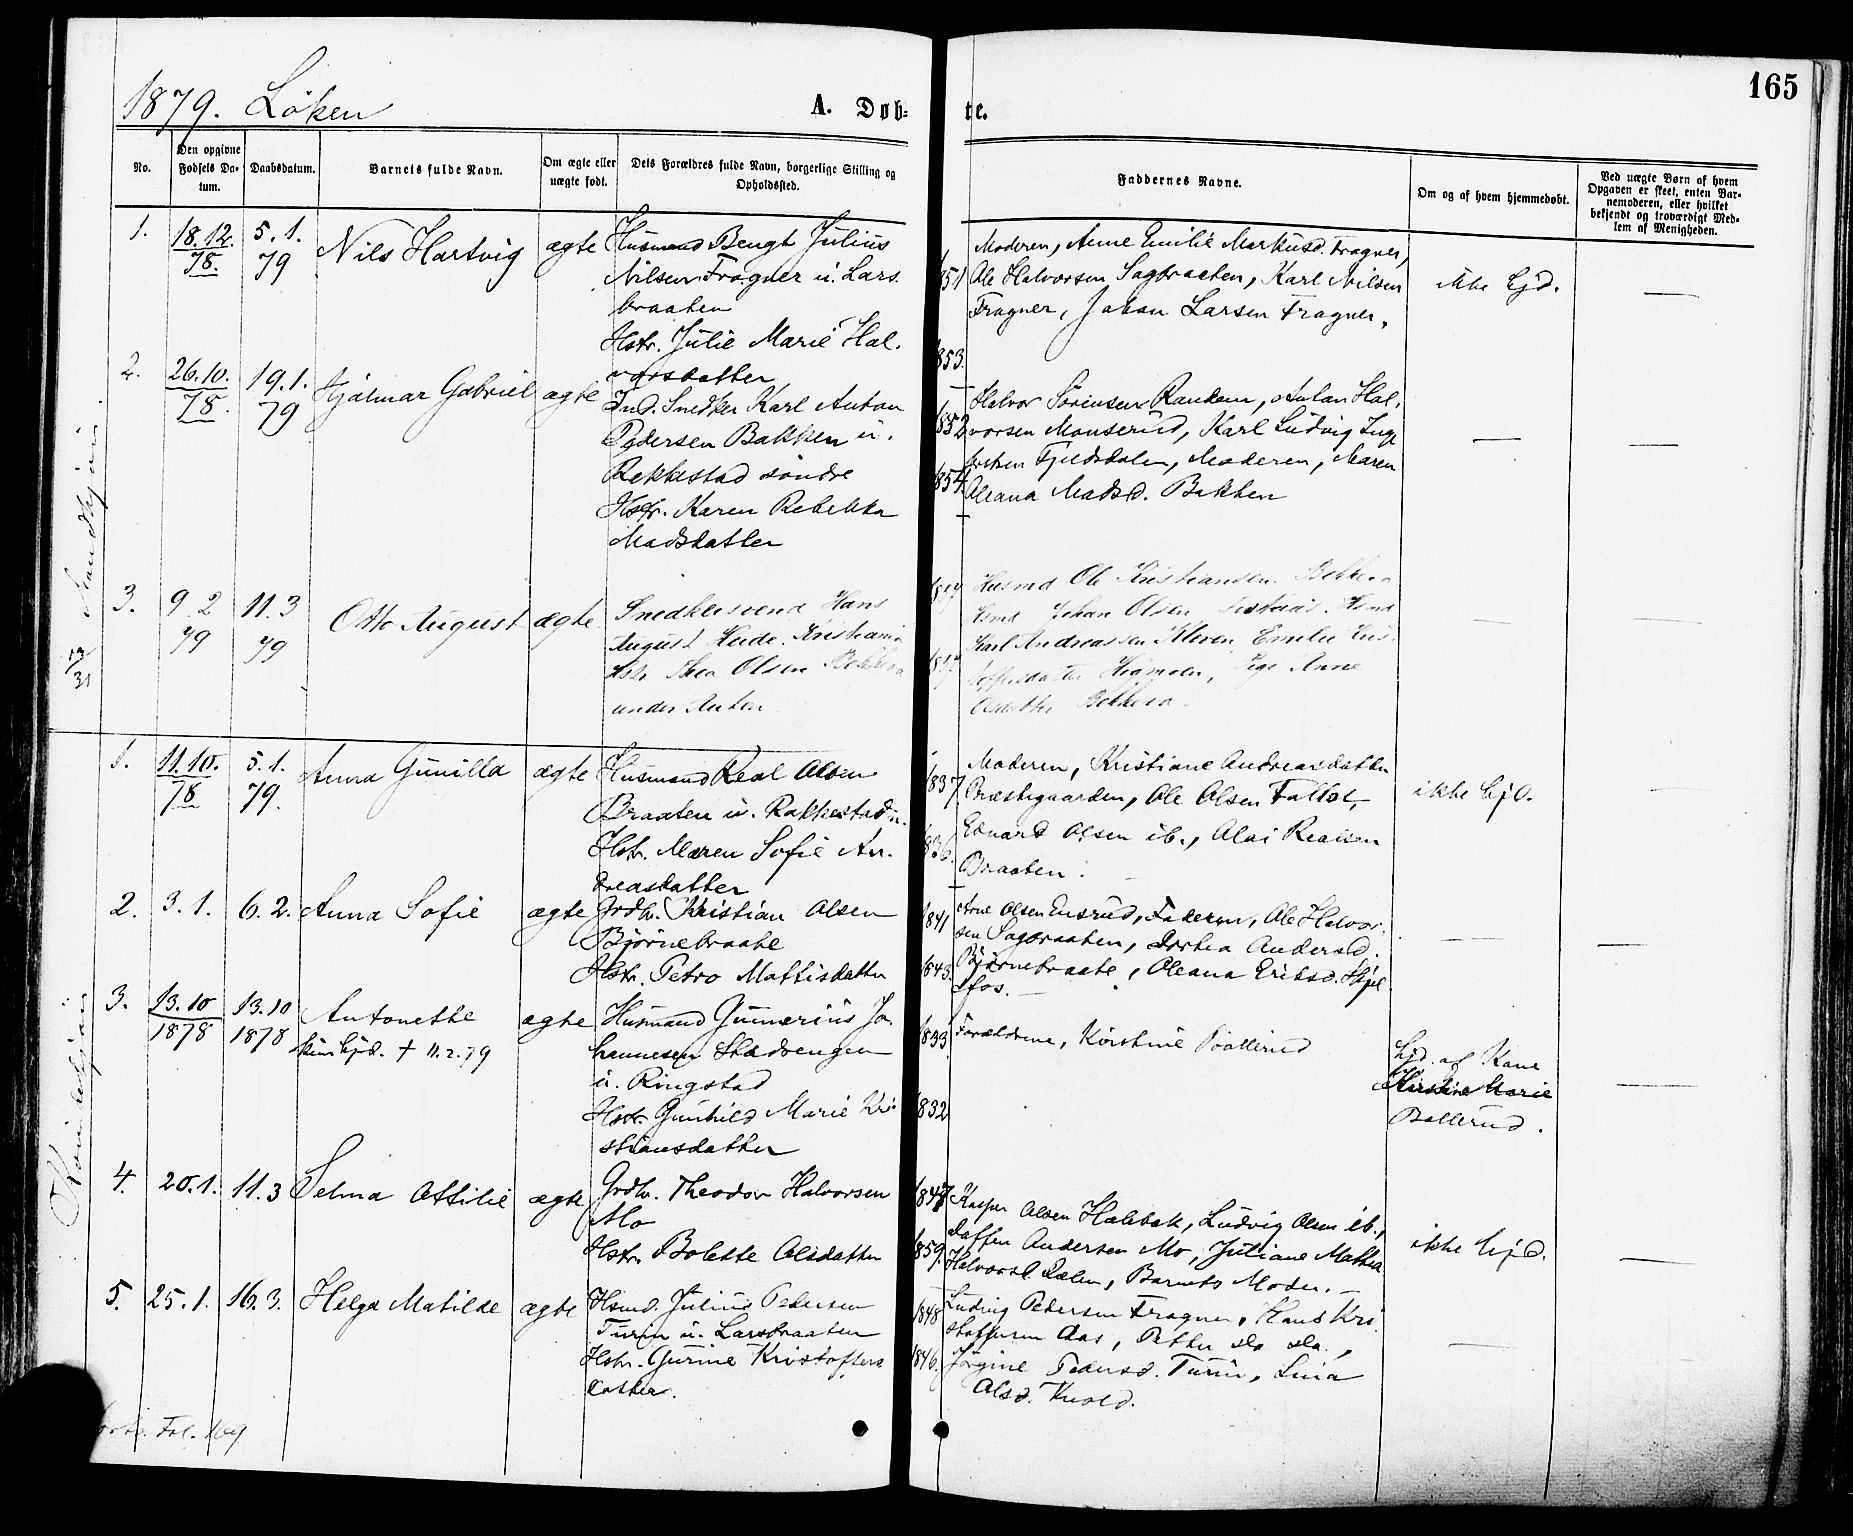 165
1879. Löken
A. Døb-
te.
No.
Den opgivne Fødsels Da-tum.
Daabsdatum.
Barnets fulde Navn.
Om ægte eller uægte født.
Dets Forældres fulde Navn, borgerlige Stilling og Opholdssted.
Faddernes Navne.
Om og af hvem hjemmedøbt.
Ved uægte Børn af hvem Opgaven er skeet, enten Bar-nemoderen, eller hvilket bekjendt og troværdigt Med-lem af Menigheden.
Mandkjøn
1. 18.12. 78. 5.1. 79 Nils Hartvig ægte
Husmand Bengt Julius
Nilsen Fragner u. Lars-
braaten
Hstr. Julie Marie Hal-
vorsdatter
1851
1853.
Moderen, Anne Emilie Markusd. Fragner,
Ole Halvorsen Sagbraaten, Karl Nilsen
Fragner, Johan Larsen Fragner.
ikke hjd.
2. 26.10. 78. 19.1. 79 Hjalmar Gabriel ægte
Ind. Snedker Karl Anton
Pedersen Bakken u.
Rakkestad søndre
Hstr. Karen Rebekka
Madsdatter
1852
1854
Halvor Sörensen Randem, Anton Hal-
vorsen Monserud, Karl Ludvig Inge
britsen Fjeldsdalen, Moderen, Maren
Oleana Madsd. Bakken
3. 9 2 79 11.3 79 Otto August ægte
Snedkersvend Hans
August Heide, Kristiania
Hstr. Thea Olsen Bekkevo
under
Husmd Ole Kristiansen
Hsmd Johan Olsen Hsmd
Karl Andreassen Kleven, Emilie Kris-
toffersdatter Pige Anne
Olsdatter
Kvindekjøn
1. 11.10. 78 5.1. 79. Anna Gunilla ægte
Husmand Real Olsen
Braaten u. Rakkestad n.
Hstr. Maren Sofie An-
dreasdatter
1837
1836.
Moderen, Kristiane Andreasdatter
Præstegaarden, Ole Olsen Fallet,
Edvard Olsen ib., Olai Realsen
Braaten.
ikke hjd.
2. 3.1. 6.2. Anna Sofie ægte
Grdbr. Kristian Olsen
Björnebraate
Hstr. Petro Mattisdatter
1841
1843.
Arne Olsen Ensrud, Faderen, Ole Halvor-
sen Sagbraaten, Dorthea Andersd.
Björnebraate, Oleana Eriksd. Skjel
fos.
3. 13.10 1878 13.10 1878 Antonette ægte
kun hjd. † 11.2.79
Husmand Gunnerius Jo-
hannesen Stadvengen
u. Ringstad
Hstr. Gunhild Marie Kri-
stiansdatter
1833
1832
Forældrene, Kirstine Böllerud
hjd. af Kone
Kirstine Marie
Böllerud.
4. 20.1. 11.3 Selma Ottilie ægte
Grdbr. Theodor Halvorsen
Mo
Hstr. Bolette Olsdatter
1847
1859.
Kasper Olsen Halsbak, Ludvig Olsen ib.,
Staffen Andersen Mo, Juliane Mathea
Halvorsd. Dalen, Barnets Moder.
ikke hjd.
5. 25.1. 16.3. Helga Matilde ægte
Hsmd. Julius Pedersen
Turin u. Larsbraaten
Hstr. Gurine Kristoffers
datter.
1848
1846.
Ludvig Pedersen Fragner, Hans Kri
stoffersen Aas, Petter do do.,
Jörgine Pedersd. Turin, Lina
Olsd. Kvold.
Fol. 169